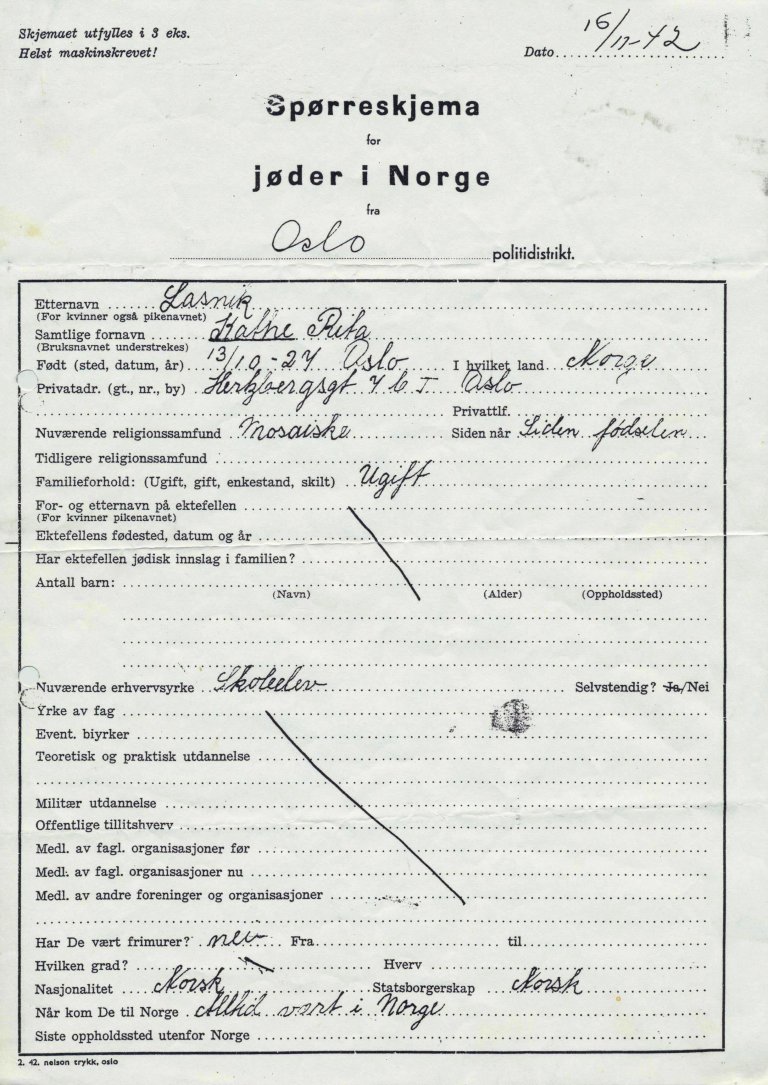 Skjemaet utfylles i 3 eks.
Helst maskinskrevet!
Dato 16/11-42
Spørreskjema
for
jøder i Norge
fra
Oslo politidistrikt.
Etternavn Lasnik
(For kvinner også pikenavnet)
Samtlige fornavn Kathe Rita
(Bruksnavnet understrekes)
Født (sted, datum, år) 13/10-27 Oslo I hvilket land Norge
Privatadr. (gt., nr., by) Hertzbergsgt 7 Oslo
Privattlf.
Nuværende religionssamfund Mosaiske Siden når Siden fødselen
Tidligere religionssamfund
Familieforhold: (Ugift, gift, enkestand, skilt) Ugift
For- og etternavn på ektefellen
(For kvinner pikenavnet)
Ektefellens fødested, datum og år
Har ektefellen jødisk innslag i familien?
Antall barn:
(Navn) (Alder) (Oppholdssted)
Nuværende erhvervsyrke Skoleelev Selvstendig? Ja/Nei
Yrke av fag
Event. biyrker
Teoretisk og praktisk utdannelse
Militær utdannelse
Offentlige tillitshverv
Medl. av fagl. organisasjoner før
Medl. av fagl. organisasjoner nu
Medl. av andre foreninger og organisasjoner
Har De vært frimurer? nei Fra til
Hvilken grad? Hverv
Nasjonalitet Norsk Statsborgerskap Norsk
Når kom De til Norge Alltid vært i Norge
Siste oppholdssted utenfor Norge
2. 42. nelson trykk, oslo